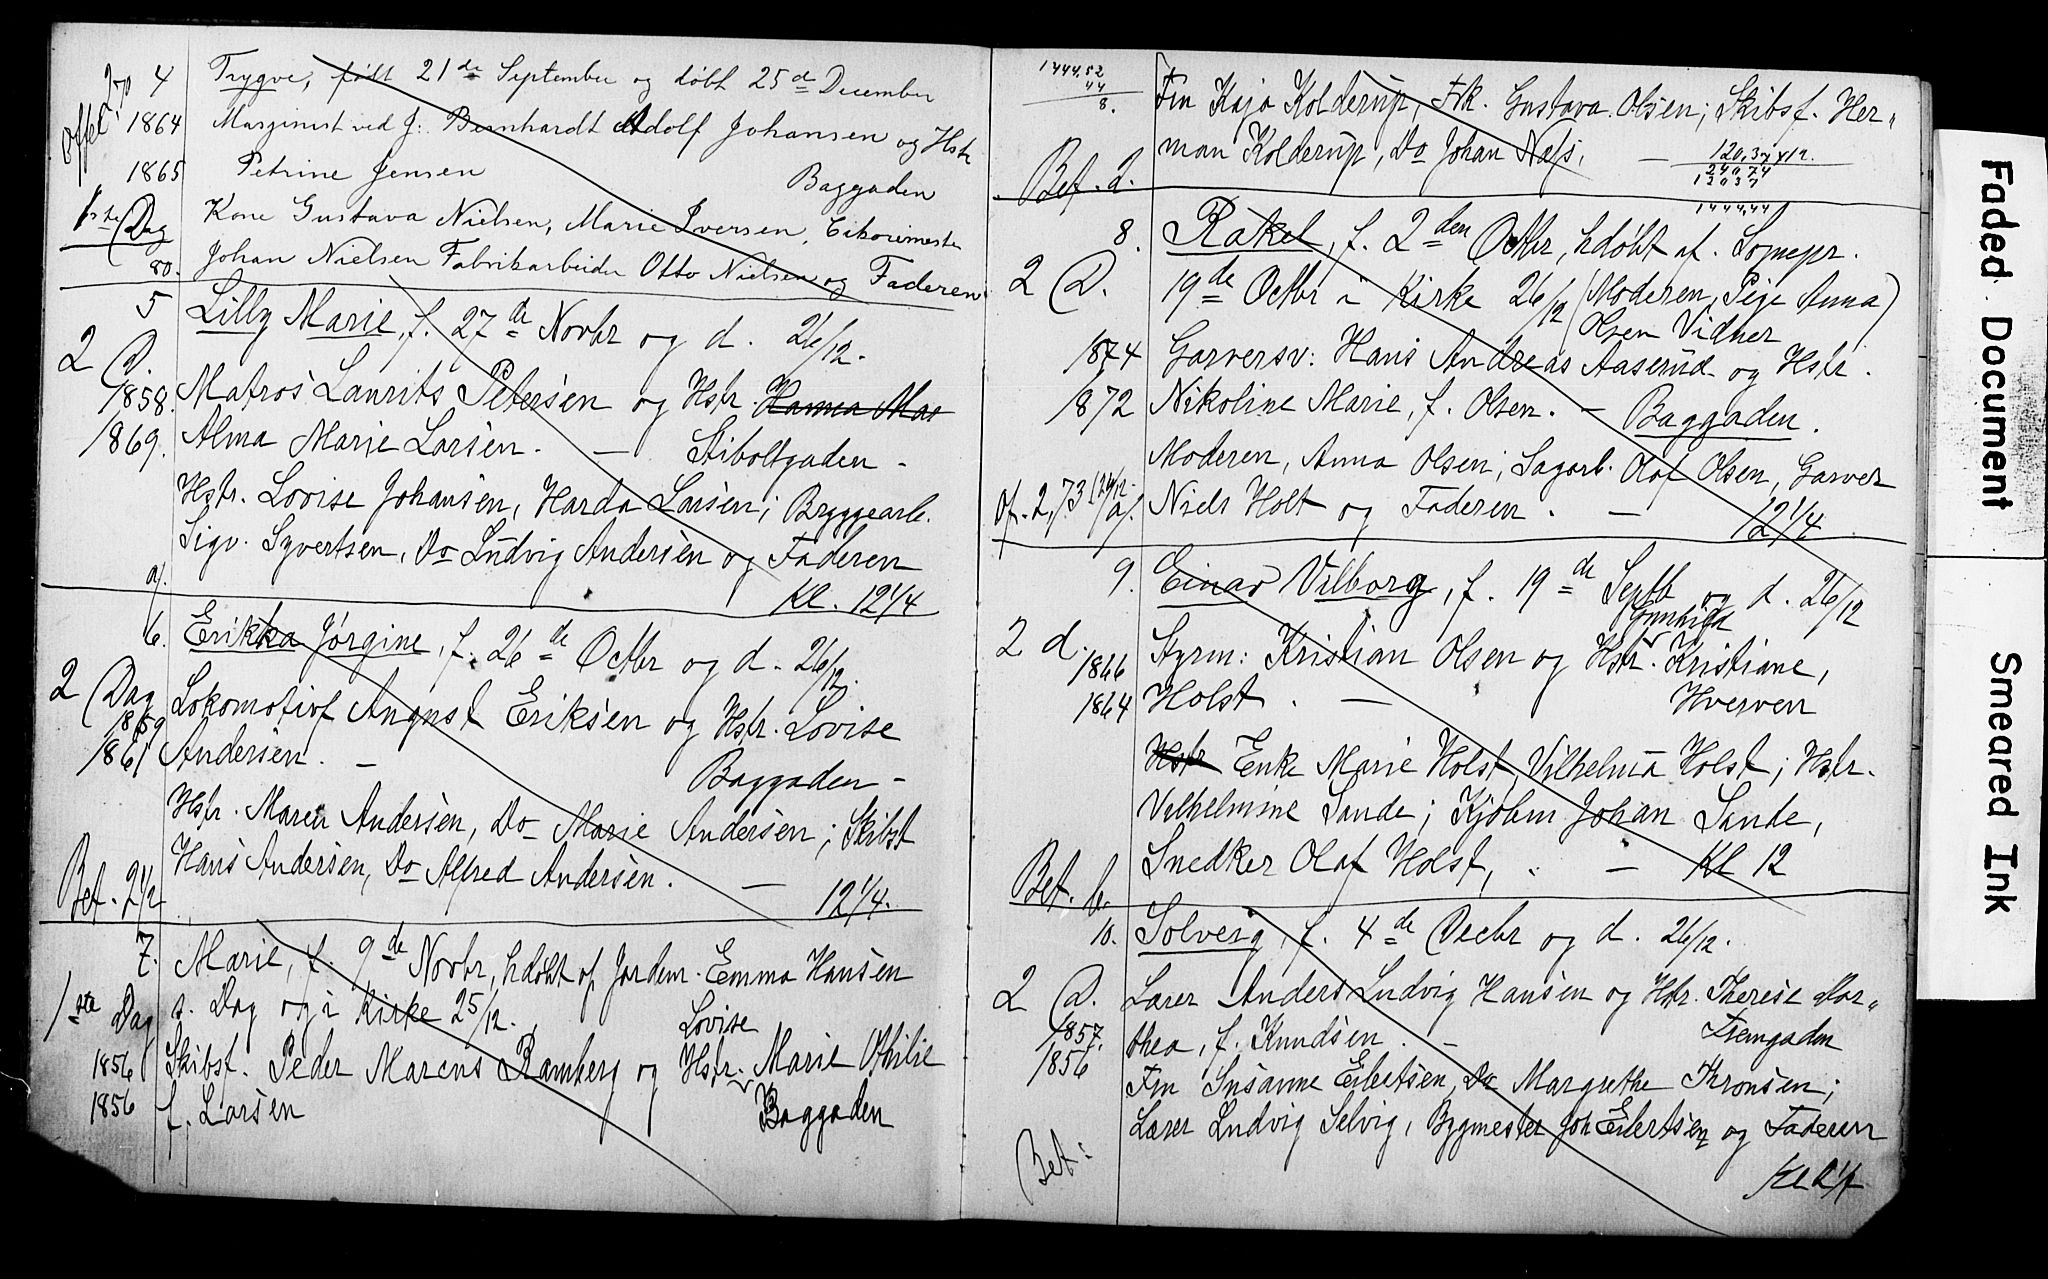 4 Trygve, født 21de September og døbt 25de December
Offel 270
1864 Marginist ved J: Bernhardt Adolf Johansen og Hstr
1865 Petrine Jensen Baggaden
1ste Dag Kone Gustava Nielsen, Marie Iversen,
80. Johan Nielsen Fabrikarbeider Otto Nielsen og Faderen
5 Lilly Marie, f. 27de Novbr og d. 26/12.
2 D.
1858. Matros Laurits Petersen og Hstr. Hanna Mar
1869. Alma Marie Larsen. — Stiboltgaden -
Hstr. Lovise Johansen, Harda Larsen; Bryggearb.
Sigv. Syvertsen, Do Ludvig Andersen og Faderen
a/. Kl. 12 1/4
6. Erikka Jørgine, f. 26de Octbr og d. 26/12.
2 Dag Lokomotivf August Eriksen og Hstr. Lovise
1859
1861 Andersen. — Baggaden -
Hstr. Maren Andersen, Do Marie Andersen; Skibst
Hans Andersen, Do Alfred Andersen. —
Bet. 2 1/2 12 1/4.
7. Marie, f. 9de Novbr, hdøbt af Jordm. Emma Hansen
1ste Dag s. Dag og i Kirke 25/12. Lovise
1856 Skibsf. Peder Marcus Ramberg og Hstr. Marie Othilie
1856 f. Larsen Baggaden
1444.52
44
8.
Fru Kaja Kolderup, Frk. Gustava Olsen; Skibsf. Her-
man Kolderup, Do Johan Næss, — 120,37 x 12.
24074
12037
Bet. d.
1444,44
8. Rakel, f. 2den Octbr, hdøbt af. Sognepr.
2 D. 19de Octbr i Kirke 26/12 (Moderen, Pige Anna)
Olsen Vidner
1874 Garversv: Hans Andreas Aaserud og Hstr.
1872 Nikoline Marie, f. Olsen. — Baggaden.
Moderen, Anna Olsen; Sagarb. Olaf Olsen, Garver
Of. 2,73 a/. Niels Holt og Faderen. — 12 1/4
9. Einar Vilborg, f. 19de Septb og d. 26/12
Gunhild
2 d. Styrm: Kristian Olsen og Hstr. Kristiane,
1866
1864 Holst. — Hverven
Hstr Enke Marie Holst, Vilhelma Holst; Hstr.
Vilhelmine Sande; Kjøbm Johan Sande,
Snedker Olaf Holst, . — Kl 12
Bet. b.
10. Solveig, f. 4de Decbr og d. 26/12.
2 D. Lærer Anders Ludvig Hansen og Hstr. Therese Dor-
1857. thea, f. Knudsen. — Fremgaden
1856
Fru Susanne Eilertsen, Do Margrethe Thronsen;
Lærer Ludvig Selvig, Bygmester Joh Eilertsen og Faderen
Bet:
Faded Document
Smeared Ink